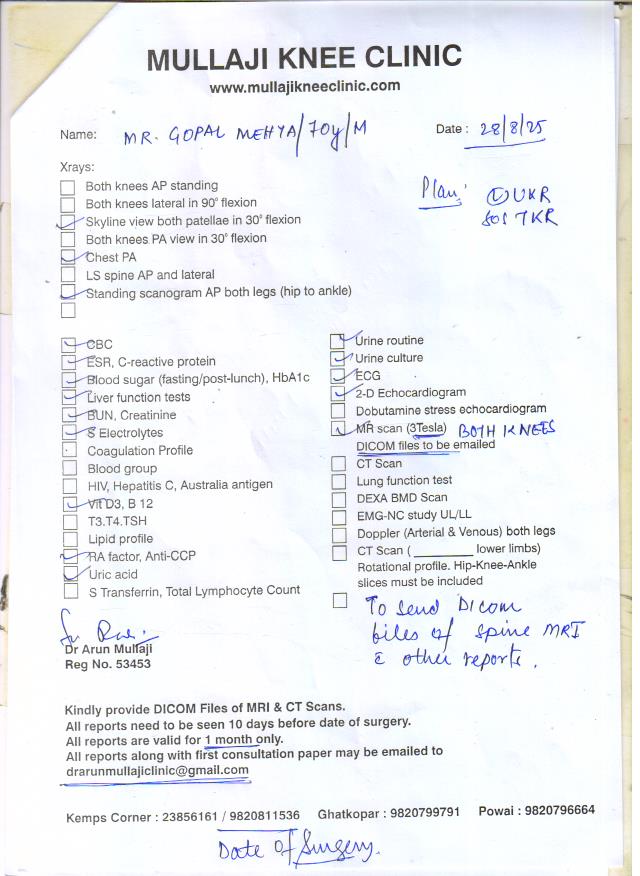 MULLAJI KNEE CLINIC
www.mullajikneeclinic.com
Name: MR. GOPAL MEHYA/70y/M
Date: 28/8/25
Xrays:
Both knees AP standing
Both knees lateral in 90° flexion
Skyline view both patellae in 30° flexion
Both knees PA view in 30° flexion
Chest PA
LS spine AP and lateral
Standing scanogram AP both legs (hip to ankle)
Plan: Ⓛ UKR
SOS TKR
CBC
ESR, C-reactive protein
Blood sugar (fasting/post-lunch), HbA1c
Liver function tests
BUN, Creatinine
S Electrolytes
Coagulation Profile
Blood group
HIV, Hepatitis C, Australia antigen
Vit D3, B 12
T3.T4.TSH
Lipid profile
RA factor, Anti-CCP
Uric acid
S Transferrin, Total Lymphocyte Count
Urine routine
Urine culture
ECG
2-D Echocardiogram
Dobutamine stress echocardiogram
MR scan (3Tesla) BOTH KNEES
DICOM files to be emailed
CT Scan
Lung function test
DEXA BMD Scan
EMG-NC study UL/LL
Doppler (Arterial & Venous) both legs
CT Scan ( ________ lower limbs)
Rotational profile. Hip-Knee-Ankle
slices must be included
To send Dicom
files of spine MRI
& other reports.
Dr Arun Mullaji
Reg No. 53453
Kindly provide DICOM Files of MRI & CT Scans.
All reports need to be seen 10 days before date of surgery.
All reports are valid for 1 month only.
All reports along with first consultation paper may be emailed to
drarunmullajiclinic@gmail.com
Kemps Corner : 23856161 / 9820811536 Ghatkopar : 9820799791 Powai : 9820796664
Date Of Surgery.